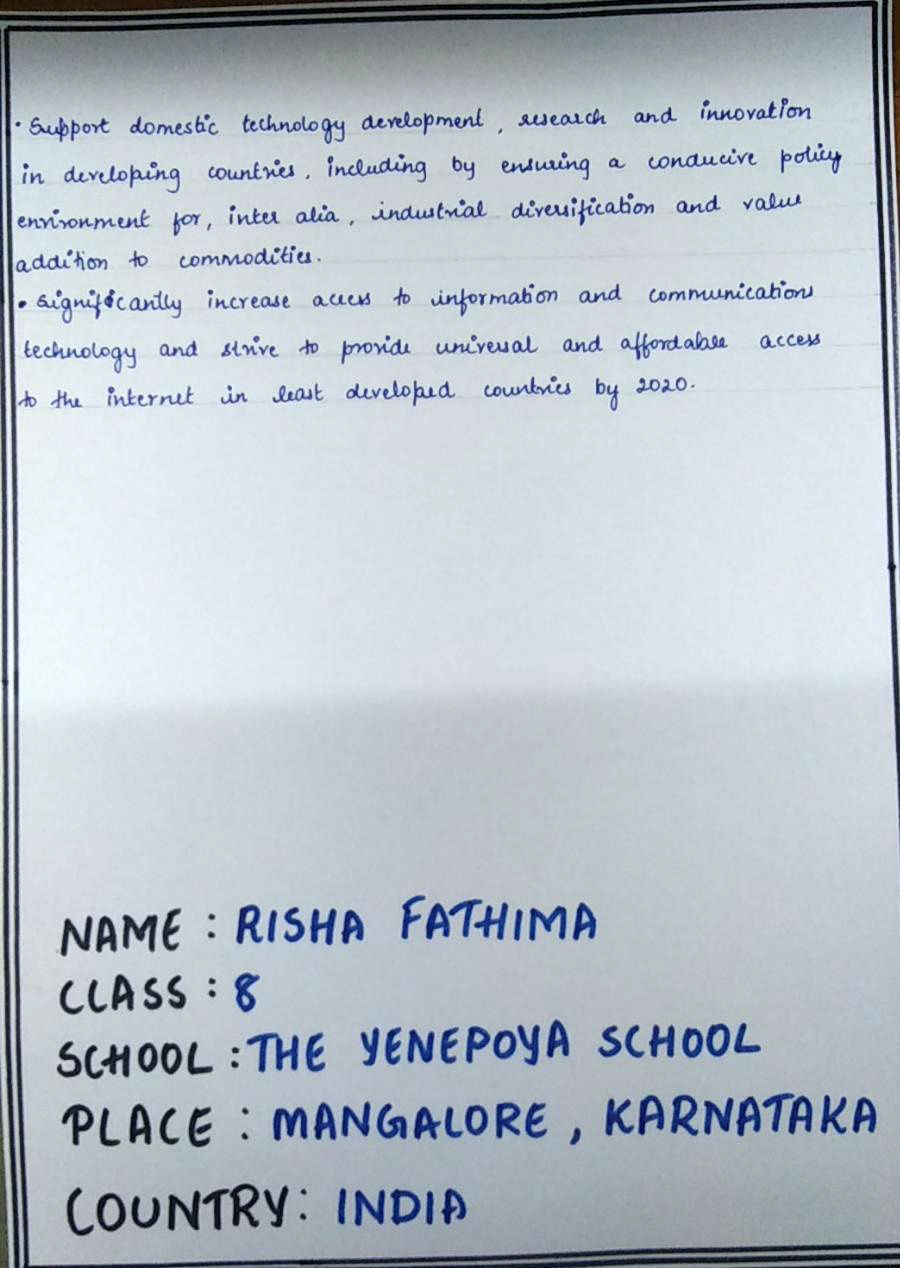 • Support domestic technology development, research and innovation
in developing countries, including by ensuring a conducive policy
environment for, inter alia, industrial diversification and value
addition to commodities.
• Significantly increase access to information and communications
technology and strive to provide universal and affordable access
to the internet in least developed countries by 2020.
NAME : RISHA FATHIMA
CLASS : 8
SCHOOL : THE YENEPOYA SCHOOL
PLACE : MANGALORE, KARNATAKA
COUNTRY : INDIA